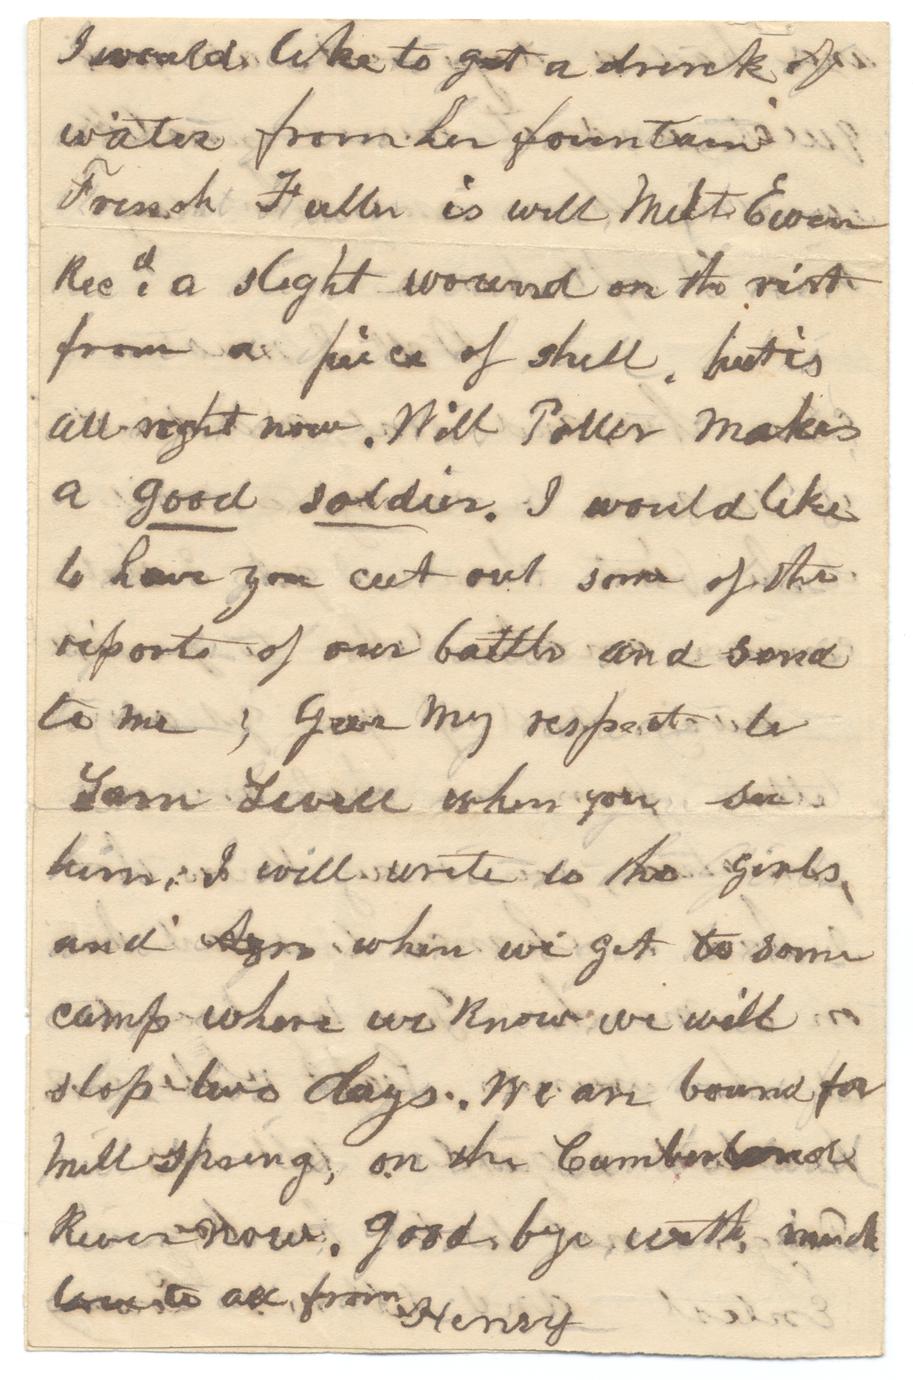 I would like to get a drink of
water from her fountain
French Fuller is well Milt Ewen
Recd a slight wound on the rist
from a piece of shell, but is
all right now. Will Potter makes
a good soldier. I would like
to have you cut out some of the
reports of our battle and send
to me ; Give my respect to
Sam when you see
him, I will write to the girls,
and when we get to some
camp where we know we will
stop two days. We are bound for
Mill Spring, on the Cumberland
River now. Good bye with much
love to all from
Henry